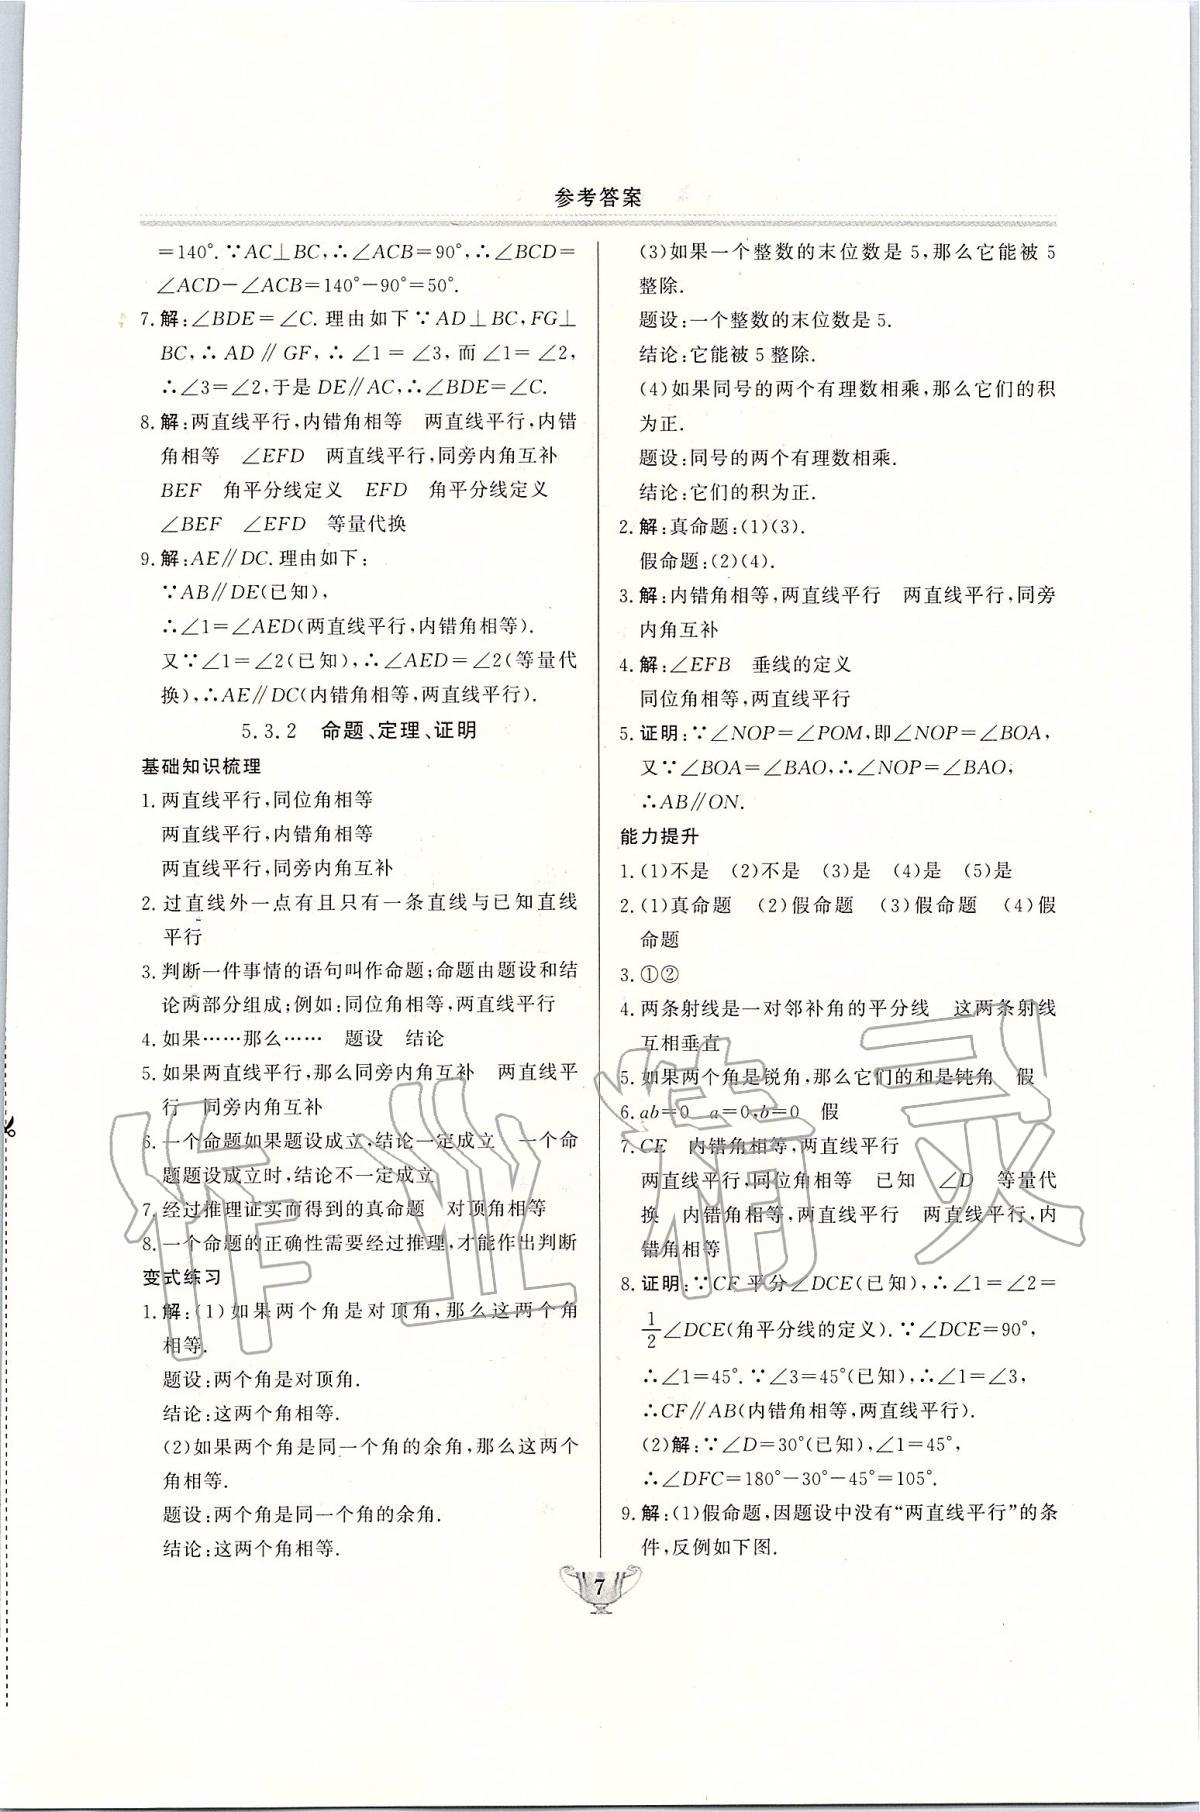 参考答案
=140°.∵AC⊥BC,∴∠ACB=90°,∴∠BCD=
∠ACD-∠ACB=140°-90°=50°.
7.解:∠BDE=∠C.理由如下∵AD⊥BC,FG⊥
BC,∴AD∥GF,∴∠1=∠3,而∠1=∠2,
∴∠3=∠2,于是DE∥AC,∴∠BDE=∠C.
8.解:两直线平行,内错角相等 两直线平行,内错
角相等 ∠EFD 两直线平行,同旁内角互补
BEF 角平分线定义 EFD 角平分线定义
∠BEF ∠EFD 等量代换
9.解:AE∥DC.理由如下:
∵AB∥DE(已知),
∴∠1=∠AED(两直线平行,内错角相等).
又∵∠1=∠2(已知),∴∠AED=∠2(等量代
换),∴AE∥DC(内错角相等,两直线平行).
5.3.2 命题、定理、证明
基础知识梳理
1.两直线平行,同位角相等
两直线平行,内错角相等
两直线平行,同旁内角互补
2.过直线外一点有且只有一条直线与已知直线
平行
3.判断一件事情的语句叫作命题;命题由题设和结
论两部分组成;例如:同位角相等,两直线平行
4.如果……那么…… 题设 结论
5.如果两直线平行,那么同旁内角互补 两直线平
行 同旁内角互补
6.一个命题如果题设成立,结论一定成立 一个命
题题设成立时,结论不一定成立
7.经过推理证实而得到的真命题 对顶角相等
8.一个命题的正确性需要经过推理,才能作出判断
变式练习
1.解:(1)如果两个角是对顶角,那么这两个角
相等.
题设:两个角是对顶角.
结论:这两个角相等.
(2)如果两个角是同一个角的余角,那么这两个
角相等.
题设:两个角是同一个角的余角.
结论:这两个角相等.
(3)如果一个整数的末位数是5,那么它能被5
整除.
题设:一个整数的末位数是5.
结论:它能被5整除.
(4)如果同号的两个有理数相乘,那么它们的积
为正.
题设:同号的两个有理数相乘.
结论:它们的积为正.
2.解:真命题:(1)(3).
假命题:(2)(4).
3.解:内错角相等,两直线平行 两直线平行,同旁
内角互补
4.解:∠EFB 垂线的定义
同位角相等,两直线平行
5.证明:∵∠NOP=∠POM,即∠NOP=∠BOA,
又∵∠BOA=∠BAO,∴∠NOP=∠BAO,
∴AB∥ON.
能力提升
1.(1)不是 (2)不是 (3)是 (4)是 (5)是
2.(1)真命题 (2)假命题 (3)假命题 (4)假
命题
3.①②
4.两条射线是一对邻补角的平分线 这两条射线
互相垂直
5.如果两个角是锐角,那么它们的和是钝角 假
6.ab=0 a=0,b=0 假
7.CE 内错角相等,两直线平行
两直线平行,同位角相等 已知 ∠D 等量代
换 内错角相等,两直线平行 两直线平行,内
错角相等
8.证明:∵CF平分∠DCE(已知),∴∠1=∠2=
1/2∠DCE(角平分线的定义).∵∠DCE=90°,
∴∠1=45°.∵∠3=45°(已知),∴∠1=∠3,
∴CF∥AB(内错角相等,两直线平行).
(2)解:∵∠D=30°(已知),∠1=45°,
∴∠DFC=180°-30°-45°=105°.
9.解:(1)假命题,因题设中没有“两直线平行”的条
件,反例如下图.
7
作业精灵